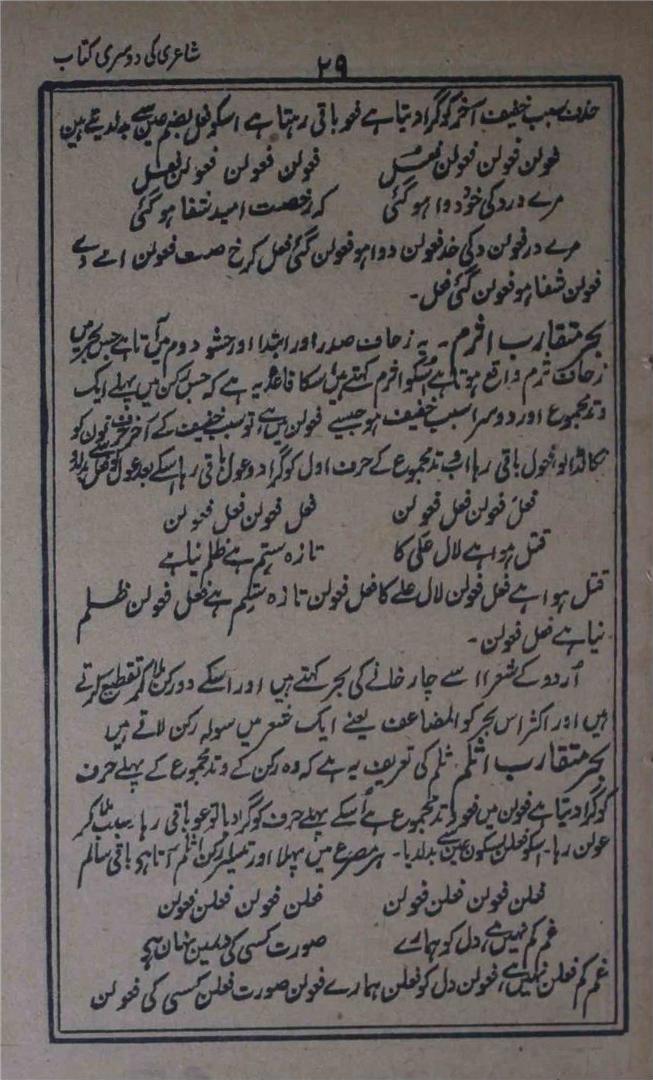 شاعری کی دوسری کتاب
۲۹
حذف سبب خفیف آخر کو گرا دیتا ہے فعو باقی رہتا ہے اسکو فعل بضم عین سے بدلدیتے ہین
فعولن فعولن فعولن فعل فعولن فعولن فعولن فعل
مرے درد کی خود دوا ہو گئی کہ رخصت امید شفا ہو گئی
مرے در فعولن د کی خد فعولن دوا ہو فعولن گئی فعل کر خ صت فعولن امے دے
فعولن شفا ہو فعولن گئی فعل۔
بحر متقارب اثرم۔ یہ زحاف صدر اور ابتدا اور حشو دوم میں آتا ہے جس بحر میں
زحاف ثرم واقع ہوتا ہے اسکو اثرم کہتے ہیں اسکا قاعدہ یہ ہے کہ جس رکن میں پہلے ایک
وتد مجموع اور دوسرا سبب خفیف ہو جیسے فعولن میں ہے، تو سبب خفیف کے آخر حرف نون کو
نکالڈالو فعول باقی رہا اب وتد مجموع کے حرف اول کو گرا دو عول باقی رہا اسکے بعد عول کو فعل سے بدلو
فعل فعولن فعل فعولن فعل فعولن فعل فعولن
قتل ہوا ہے لال علی کا تازہ ستم ہے ظلم نیا ہے
قتل ہوا ہے فعل فعولن لال علے کا فعل فعولن تازہ ستم ہے فعل فعولن ظلم
نیا ہے فعل فعولن۔
اردو کے شعرا اسے چار خانے کی بحر کہتے ہیں اور اسکے دو رکن ملا کر تقطیع کرتے
ہیں اور اکثر اس بحر کو المضاعف یعنے ایک شعر میں سولہ رکن لاتے ہیں
بحر متقارب اثلم ثلم کی تعریف یہ ہے کہ وہ رکن کے وتد مجموع کے پہلے حرف
کو گرا دیتا ہے فعولن میں فعو وتد مجموع ہے اُسکے پہلے حرف کو گرا دیا تو عو باقی رہا سبب ملا کر
عولن رہا۔ اسکو فعلن بسکون عین سے بدلدیا۔ ہر مصرع میں پہلا اور تیسرا رکن اثلم آتا ہی باقی سالم
فعلن فعولن فعلن فعولن فعلن فعولن فعلن فعولن
غم کم نہیں ہے، دل کو ہمارے صورت کسی کی دلمین نہان ہی
غم کم فعلن نہیں ہے، فعولن دل کو فعلن ہمارے فعولن صورت فعلن کسی کی فعولن